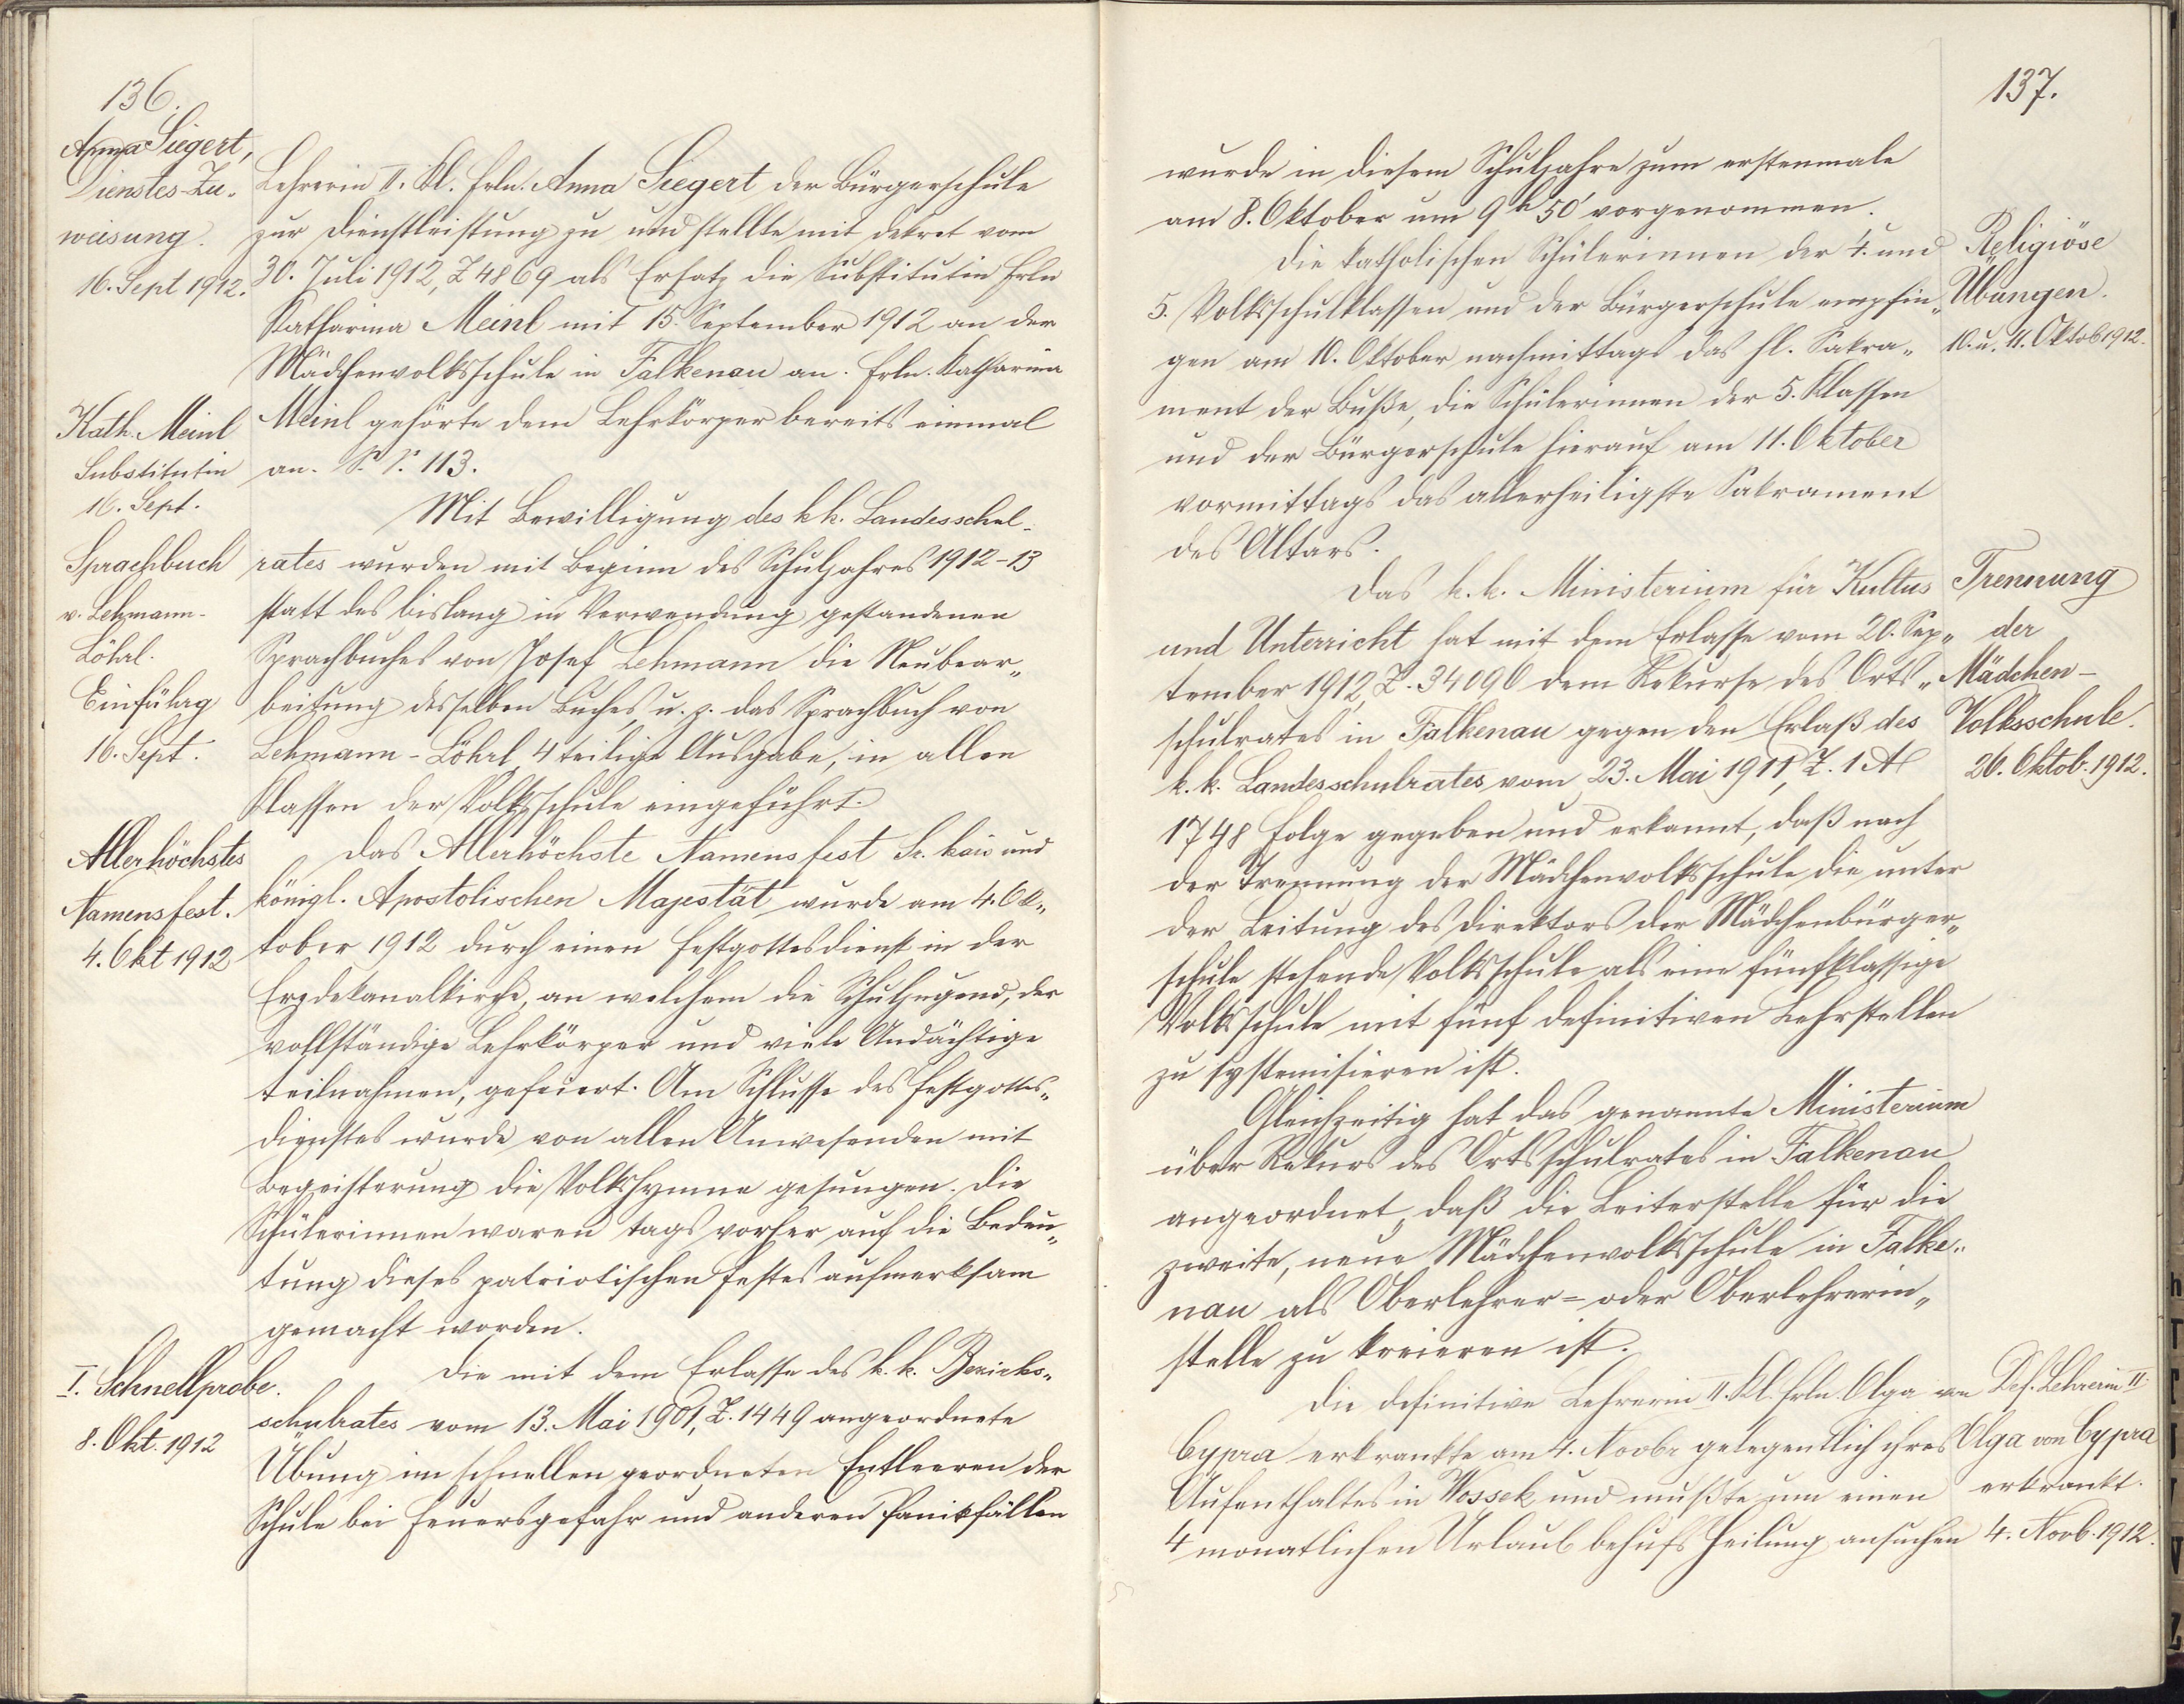 136.
Anna Siegert,
Dienstes-Zu-
weisung.
16. Sept 1912.
Lehrerin II. Kl. Frln. Anna Siegert der Bürgerschule
zur Dienstleistung zu und stellte mit Dekret vom
30. Juli 1912, Z 4869 als Ersatz die Substitutin Frln
Katharina Meinl mit 15. September 1912 an der
Mädchenvolksschule in Falkenau an. Frln. Katharina
Kath. Meinl
Substitutin
16. Sept.
Meinl gehörte dem Lehrkörper bereits einmal
an. S. 113.
Mit Bewilligung des k k. Landesschul-
Sprachbuch
v. Lehmann-
Löhrl.
Einführg
16. Sept.
rates wurden mit Beginn des Schuljahres 1912-13
statt des bislang in Verwendung gestandenen
Sprachbuches von Josef Lehmann die Neubear„
beitung desselben Buches u. z. das Sprachbuch von
Lehmann-Löhrl 4 teilige Ausgabe, in allen
Klassen der Volksschule eingeführt.
Allerhöchstes
Namensfest.
4. Okt 1912
Das Allerhöchste Namensfest Sr. kais und
königl. Apostolischen Majestät wurde am 4. Ok„
tober 1912 durch einen Festgottesdienst in der
Erzdekanalkirche, an welchem die Schuljugend, der
vollständige Lehrkörper und viele Andächtige
teilnahmen, gefeiert. Am Schlusse des Festgottes„
dienstes wurde von allen Anwesenden mit
Begeisterung die Volkshymne gesungen. Die
Schülerinnen waren tags vorher auf die Bedeu„
tung dieses patriotischen Festes aufmerksam
gemacht worden.
I. Schnellprobe.
8. Okt. 1912
Die mit dem Erlasse des k. k. Bezirks„
schulrates vom 13. Mai 1901, Z. 1449 angeordnete
Übung im schnellen geordneten Entleeren der
Schule bei Feuersgefahr und anderen Panikfällen
137.
wurde in diesem Schuljahre zum erstenmale
am 8. Oktober um 9h 50' vorgenommen.
Religiöse
Übungen.
10. u. 11. Oktob 1912.
Die katholischen Schülerinnen der 4. und
5. Volksschulklassen und der Bürgerschule empfin„
gen am 10. Oktober nachmittags das hl. Sakra„
ment der Buße, die Schülerinnen der 5. Klassen
und der Bürgerschule hierauf am 11. Oktober
vormittags das allerheiligste Sakrament
des Altars.
Trennung
der
Mädchen-
Volksschule.
26. Oktob. 1912.
Das k. k. Ministerium für Kultus
und Unterricht hat mit dem Erlasse vom 20. Sep„
tember 1912, Z. 34096 dem Rekurse des Orts„
schulrates in Falkenau gegen den Erlaß des
k. k. Landesschulrates vom 23. Mai 1911, Z. 1 A
1748 Folge gegeben und erkannt, daß nach
der Trennung der Mädchenvolksschule die unter
der Leitung des Direktors der Mädchenbürger„
schule stehende Volksschule als eine fünfklassige
Volksschule mit fünf definitiven Lehrstellen
zu systemisieren ist.
Gleichzeitig hat das genannte Ministerium
über Rekurs des Ortsschulrates in Falkenau
angeordnet, daß die Leiterstelle für die
zweite, neue Mädchenvolksschule in Falke„
nau als Oberlehrer= oder Oberlehrerin„
stelle zu kreieren ist.
Def. Lehrerin II.
Olga von Cypra
erkrankt.
4. Novb. 1912.
Die definitive Lehrerin II. Kl. Frln Olga von
Cypra erkrankte am 4. Novbr gelegentlich ihres
Aufenthaltes in Wossek und mußte um einen
4 monatlichen Urlaub behufs Heilung ansuchen